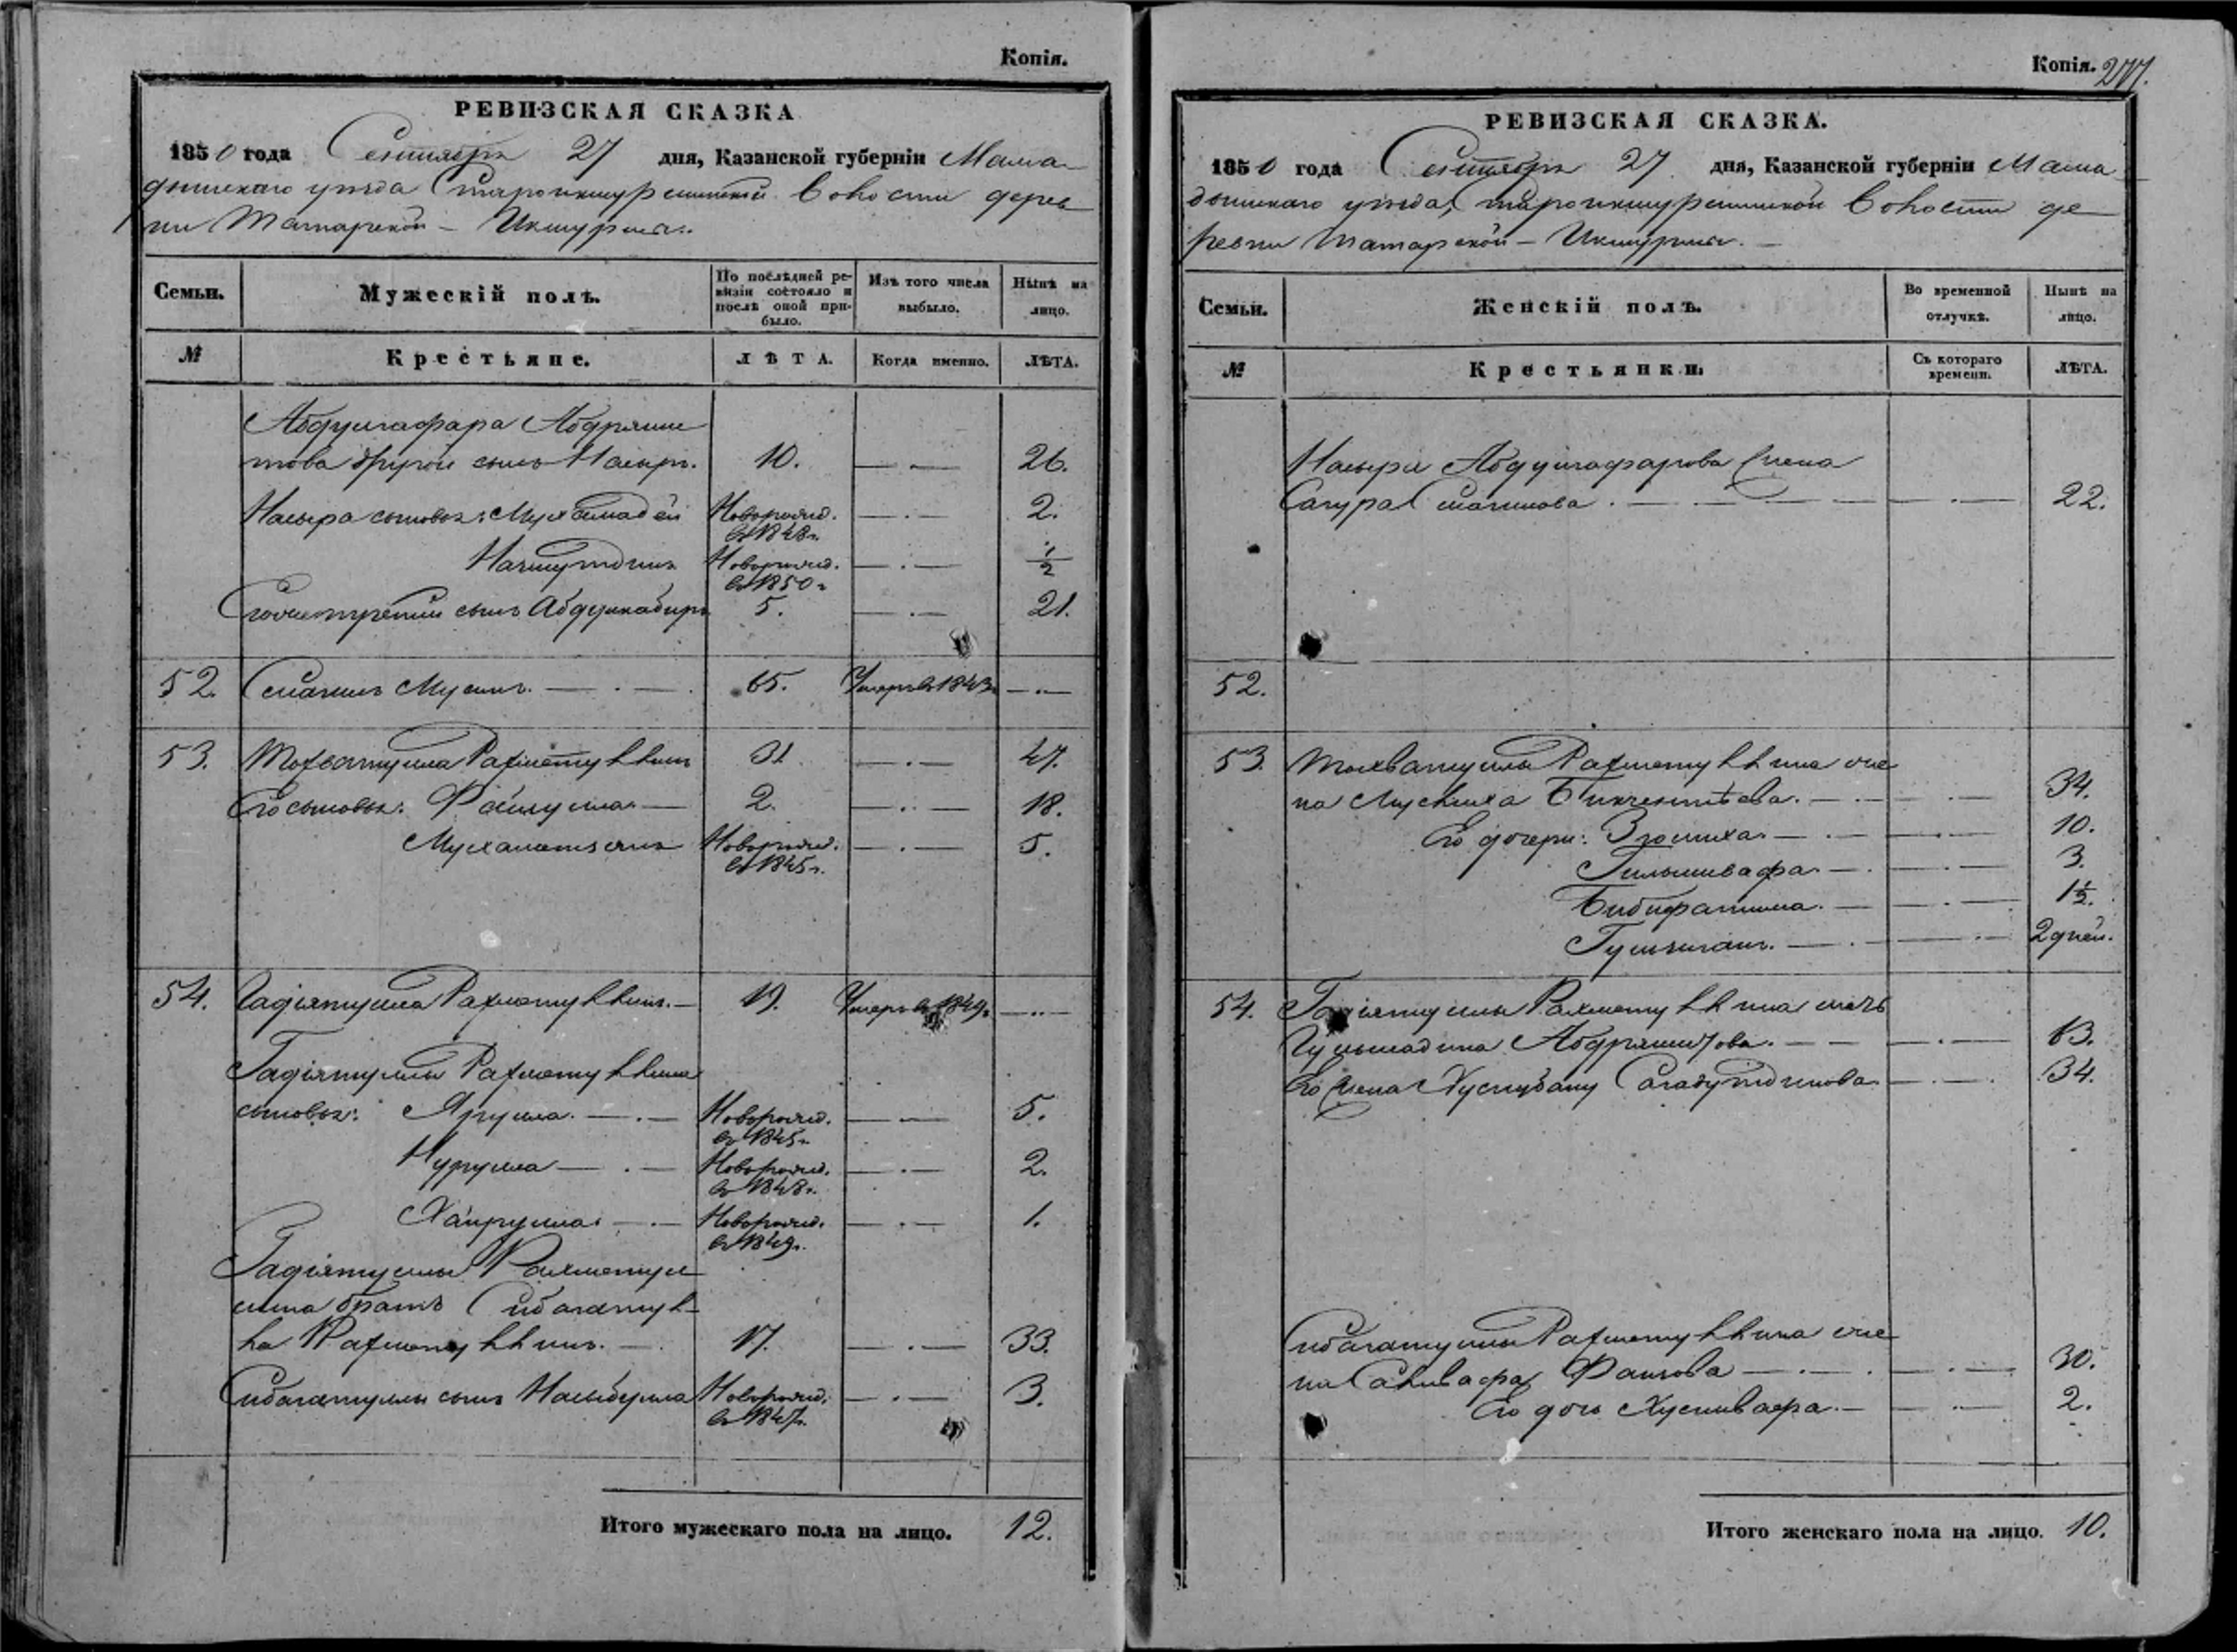 Копія.
РЕВИЗСКАЯ СКАЗКА
1850 года Сентября 27 дня, Казанской губерніи Мама-
дышскаго уѣзда Староикшурминской волости дерев
ни Татарской - Икшурма.
Семьи.
Мужескій полъ.
По послѣдней ре-
визіи состояло и
послѣ оной при-
было.
Изъ того числа
выбыло.
Нынѣ на
лицо.
№
Крестьяне.
ЛѢТА.
Когда именно.
ЛѢТА.
Абдулгафара Абдряши
това другой сынъ Насыръ. 10. 26.
Насыра сыновья: Мухамадей Новорожд. 2.
въ 1848 г.
Новорожд. 1/2
въ 1850 г.
Его же третий сынъ Абдулкабиръ 5. 21.
52. Смагилъ Мусинъ. 65. Умеръ въ 1843 г.
53. Рахметуллинъ 31. 47.
Его сыновья: Файзулла 2. 18.
Новорожд. 5.
въ 1845 г.
54. Гадіятулла Рахметуллинъ. 19. Умеръ въ 1849 г.
Гадіятуллы Рахметуллина
сыновья: Ярулла. Новорожд. 5.
въ 1845 г.
Нурулла Новорожд. 2.
въ 1848 г.
Хайрулла. Новорожд. 1.
въ 1849 г.
Гадіятуллы Рахметул
лина братъ Сибагатул-
ла Рахметуллинъ. 17. 33.
Сибагатуллы сынъ Насыбулла Новорожд. 3.
въ 1847 г.
Итого мужескаго пола на лицо. 12.
Копія. 277.
РЕВИЗСКАЯ СКАЗКА.
1850 года Сентября 27 дня, Казанской губерніи Мама
дышскаго уѣзда, Староикшурминской волости де
ревни Татарской - Икшурма.
Семьи.
Женскій полъ.
Во временной
отлучкѣ.
Нынѣ на
лицо.
№
Крестьянки.
Съ котораго
времени.
ЛѢТА.
Насыра Абдулгафарова жена
Сагура Смагилова. 22.
52.
53. Рахметуллина же
на Бикчентѣева. 34.
Его дочери: 10.
3.
Бибифатима. 1 1/2.
2 дней.
54. Гадіятуллы Рахметуллина мать
Абдряшитова. 63.
Его жена Хуснубану Сагадутдинова 34.
Сибагатуллы Рахметуллина же
на Фаизова 30.
Его дочь Хуснивафа. 2.
Итого женскаго пола на лицо. 10.